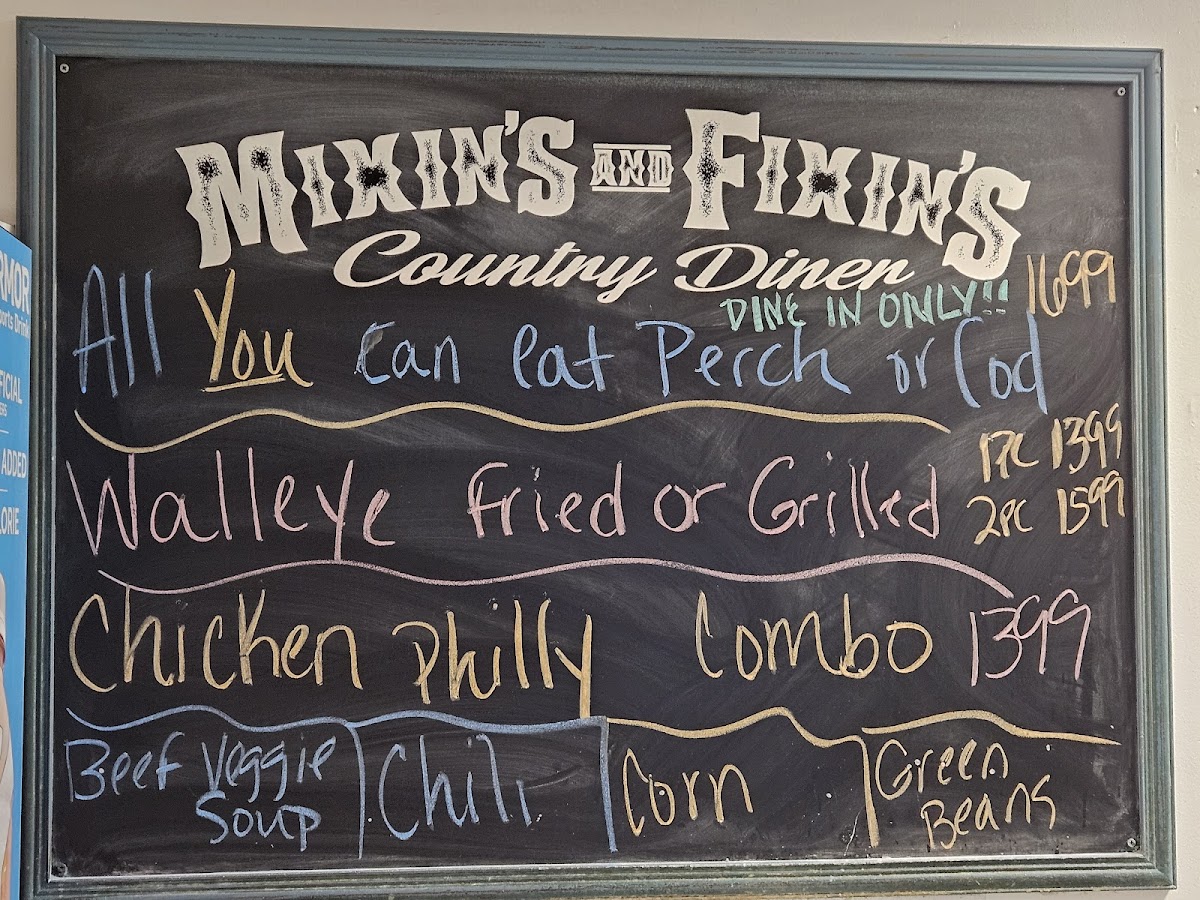 MIXIN'S AND FIXIN'S
Country Diner
DINE IN ONLY!! 1699
All You Can eat Perch or Cod
Walleye Fried or Grilled
1pc 1399
2pc 1599
Chicken Philly Combo 1399
Beef Veggie
Soup
Chili
Corn
Green
Beans
ports Drink
ADDED